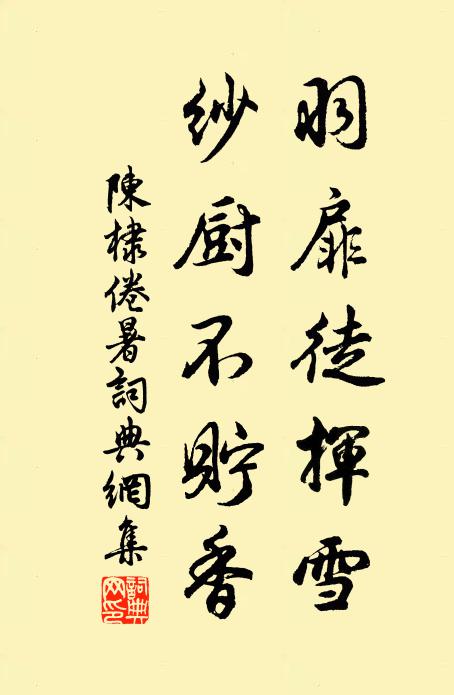 羽扉徒揮雪
紗厨不貯香
陳棣倦暑詞典網集
詞典網印